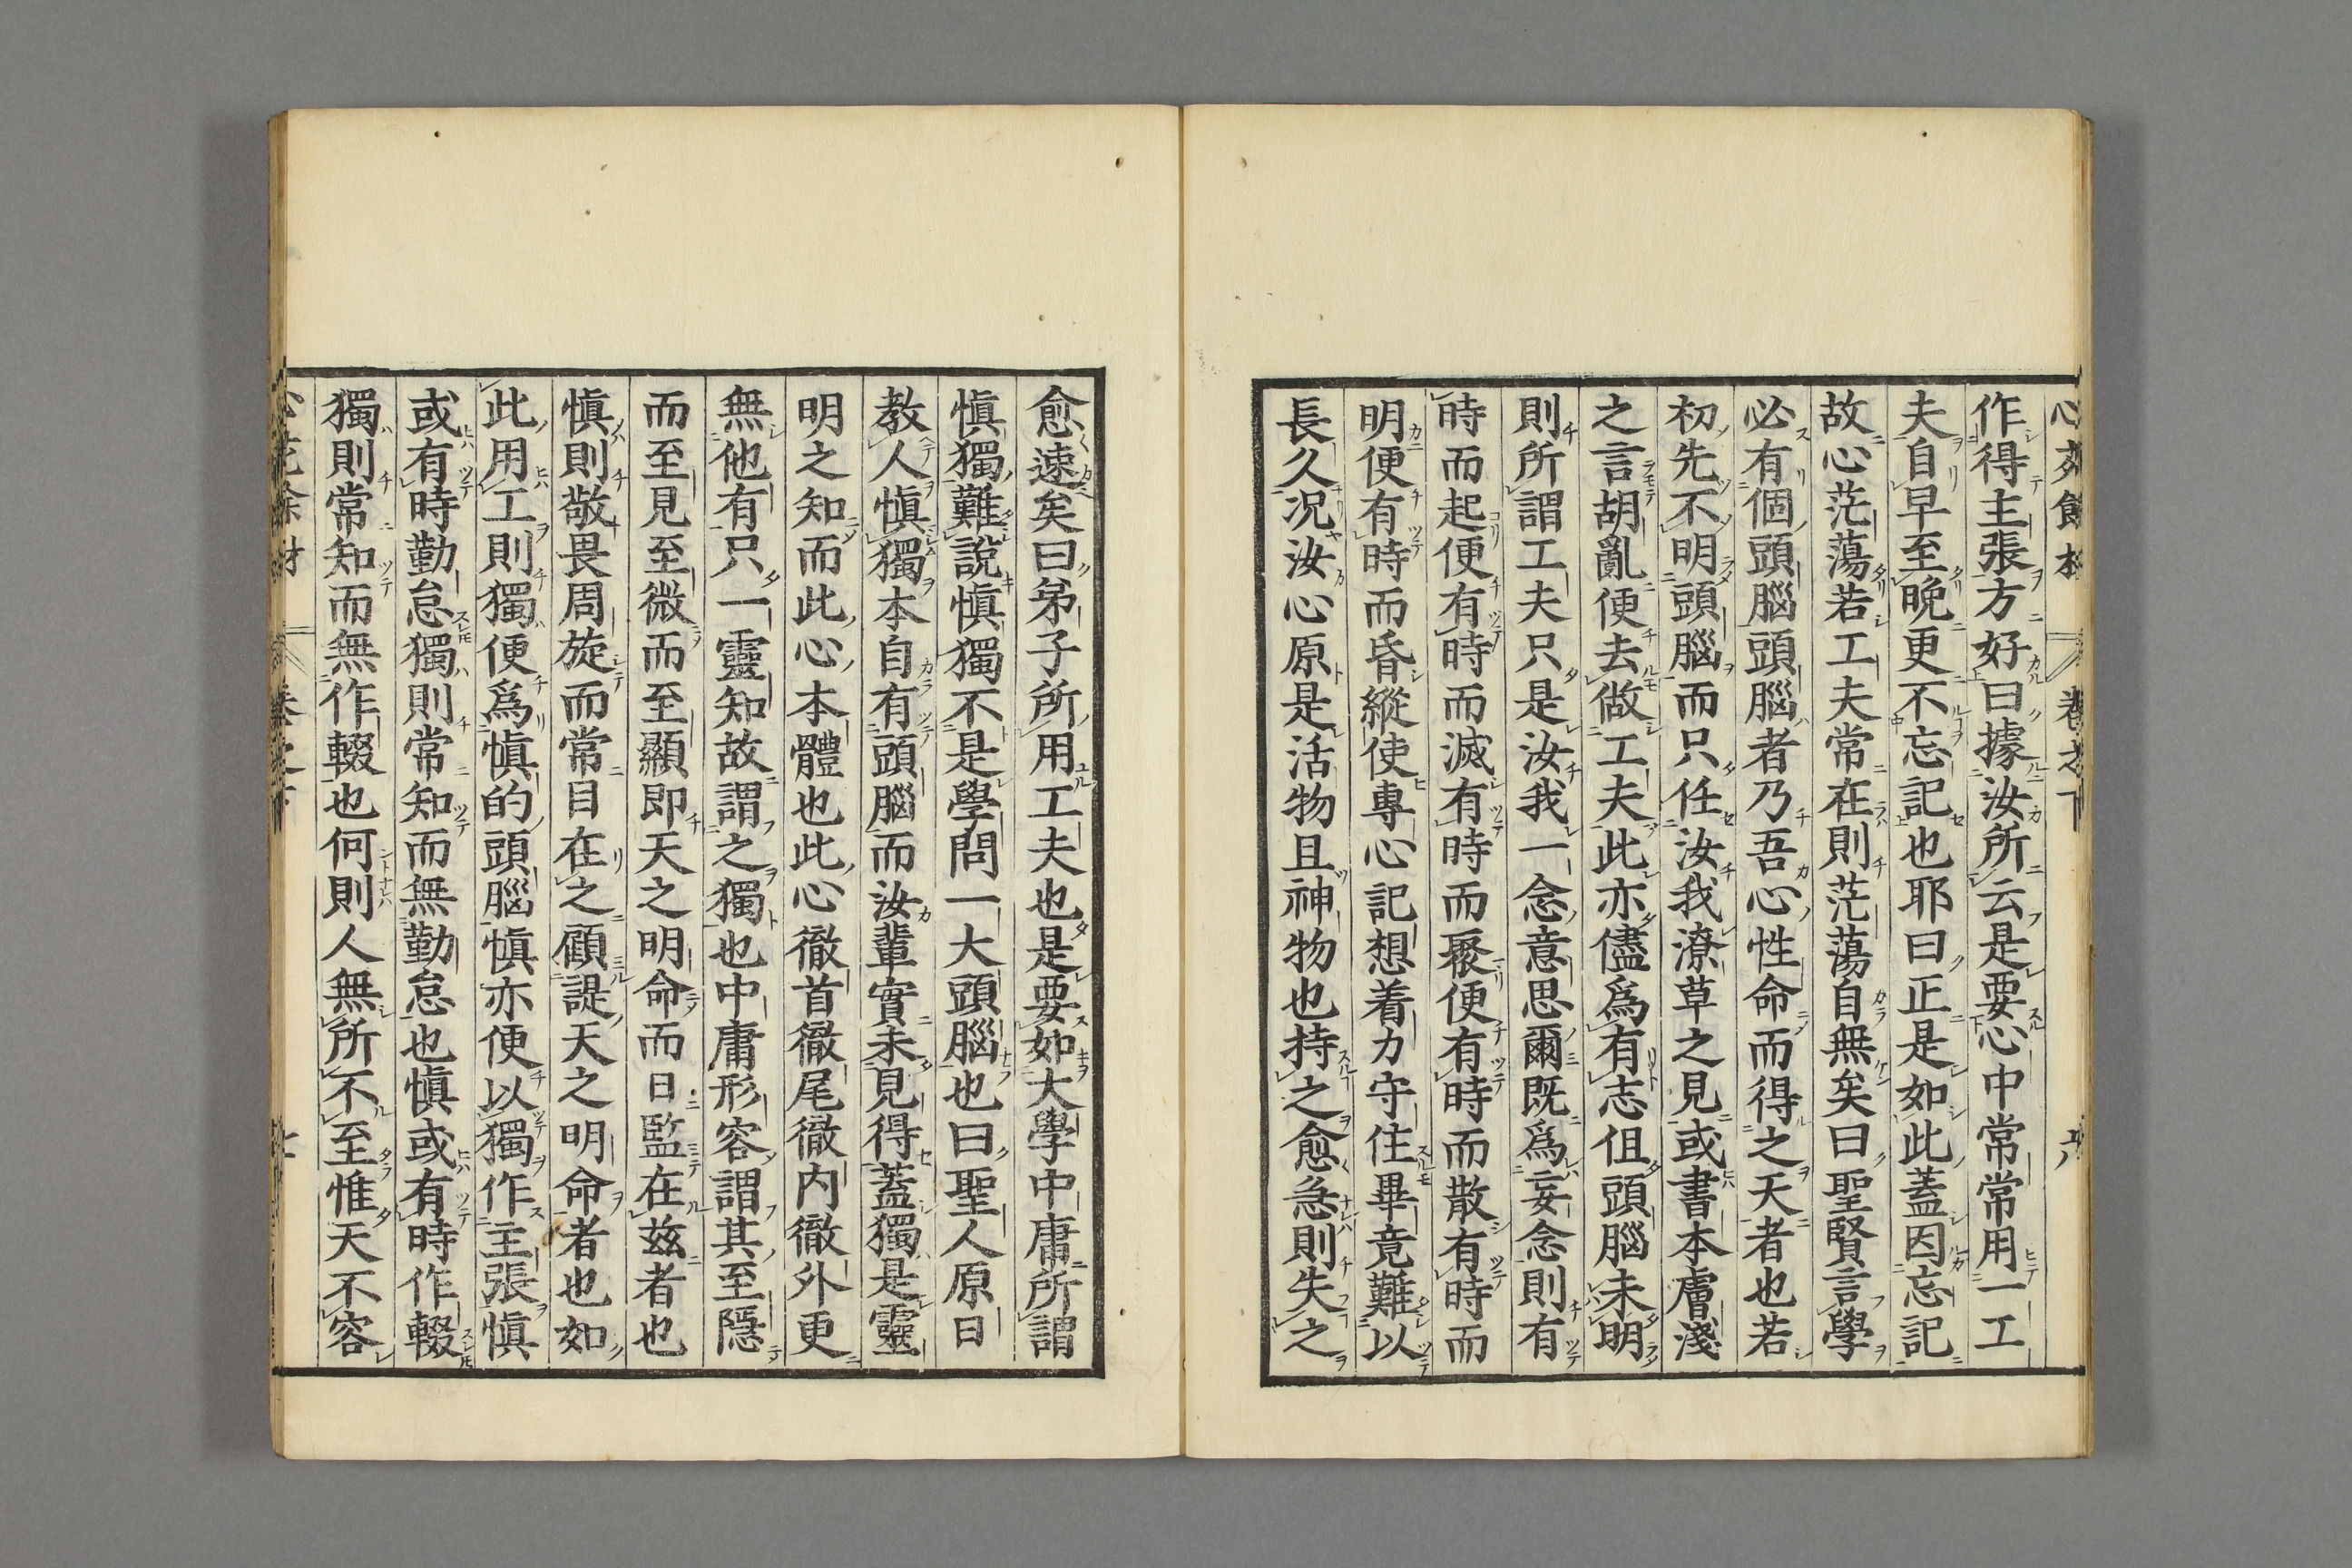 作得主張方好曰據汝所云是要心中常常用一工
夫自早至晩更不忘記也耶曰正是如此蓋因忘記
故心茫蕩若工夫常在則茫蕩自無矣曰聖賢言學
必有個頭腦頭腦者乃吾心性命而得之天者也若
初先不明頭腦而只任汝我潦草之見或書本膚淺
之言胡亂便去做工夫此亦儘爲有志但頭腦未明
則所謂工夫只是汝我一念意思爾既爲妄念則有
時而起便有時而滅有時而聚便有時而散有時而
明便有時而昏縱使專心記想着力守住畢竟難以
長久况汝心原是活物且神物也持之愈急則失之
愈速矣曰弟子所用工夫也是要如大學中庸所謂
愼獨難說愼獨不是學問一大頭腦也曰聖人原曰
教人愼獨本自有頭腦而汝輩實未見得蓋獨是靈
明之知而此心本體也此心徹首徹尾徹内徹外更
無他有只一靈知故謂之獨也中庸形容謂其至隱
而至見至微而至顯即天之明命而日監在玆者也
愼則敬畏周旋而常目在之顧諟天之明命者也如
此用工則獨便爲愼的頭腦愼亦便以獨作主張愼
或有時勤怠獨則常知而無勤怠也愼或有時作輟
獨則常知而無作輟也何則人無所不至惟天不容